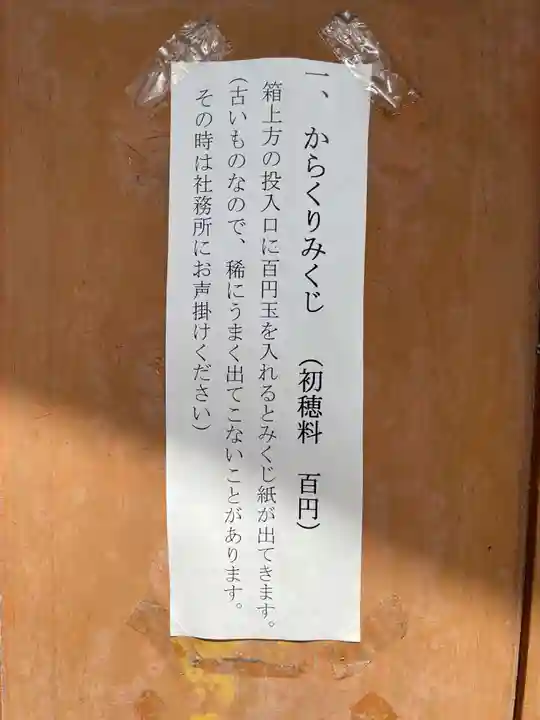 一、からくりみくじ　（初穂料　百円）
箱上方の投入口に百円玉を入れるとみくじ紙が出てきます。
（古いものなので、稀にうまく出てこないことがあります。
その時は社務所にお声掛けください）